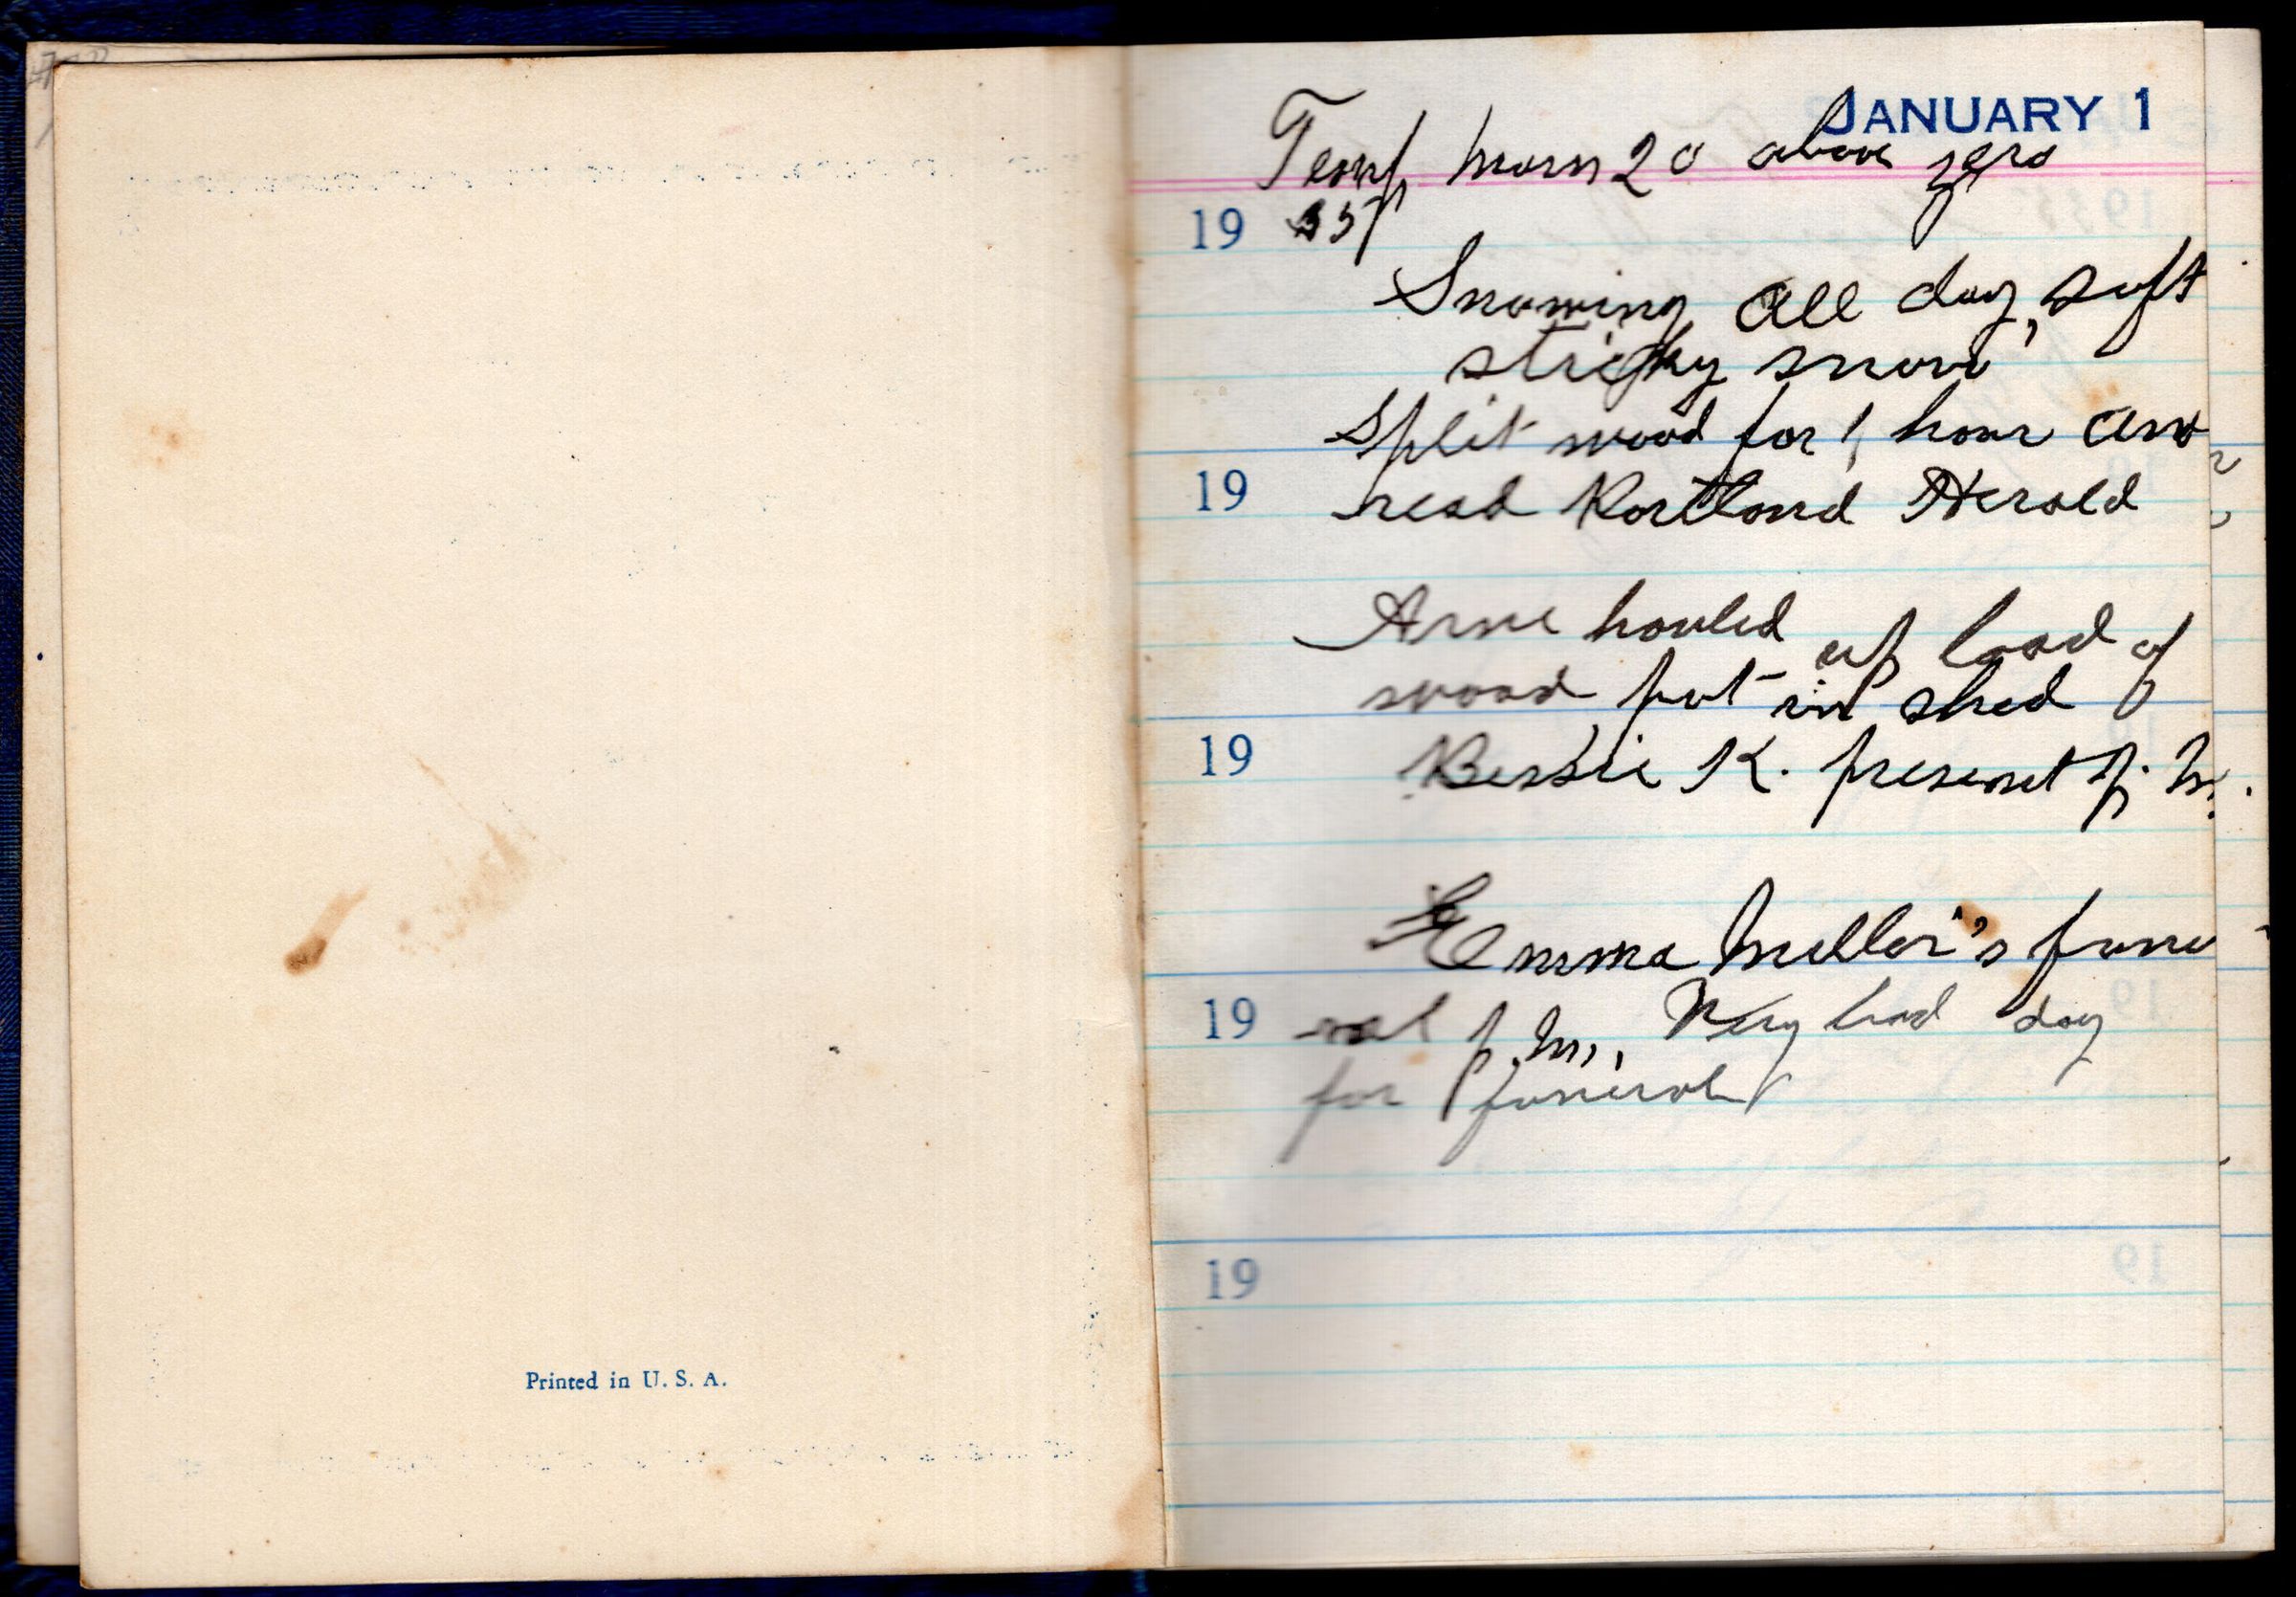 Printed in U. S. A.
JANUARY 1
Temp morn 20 above zero
19 35
Snowing all day, soft
sticky snow
Split wood for 1 hour and
19 read Portland Herald
Arne houled up load of
wood put in shed
19 Bessie K. present P. M.
Emma Meller's fune
19 ral P.M., Very bad day
for funeral
19